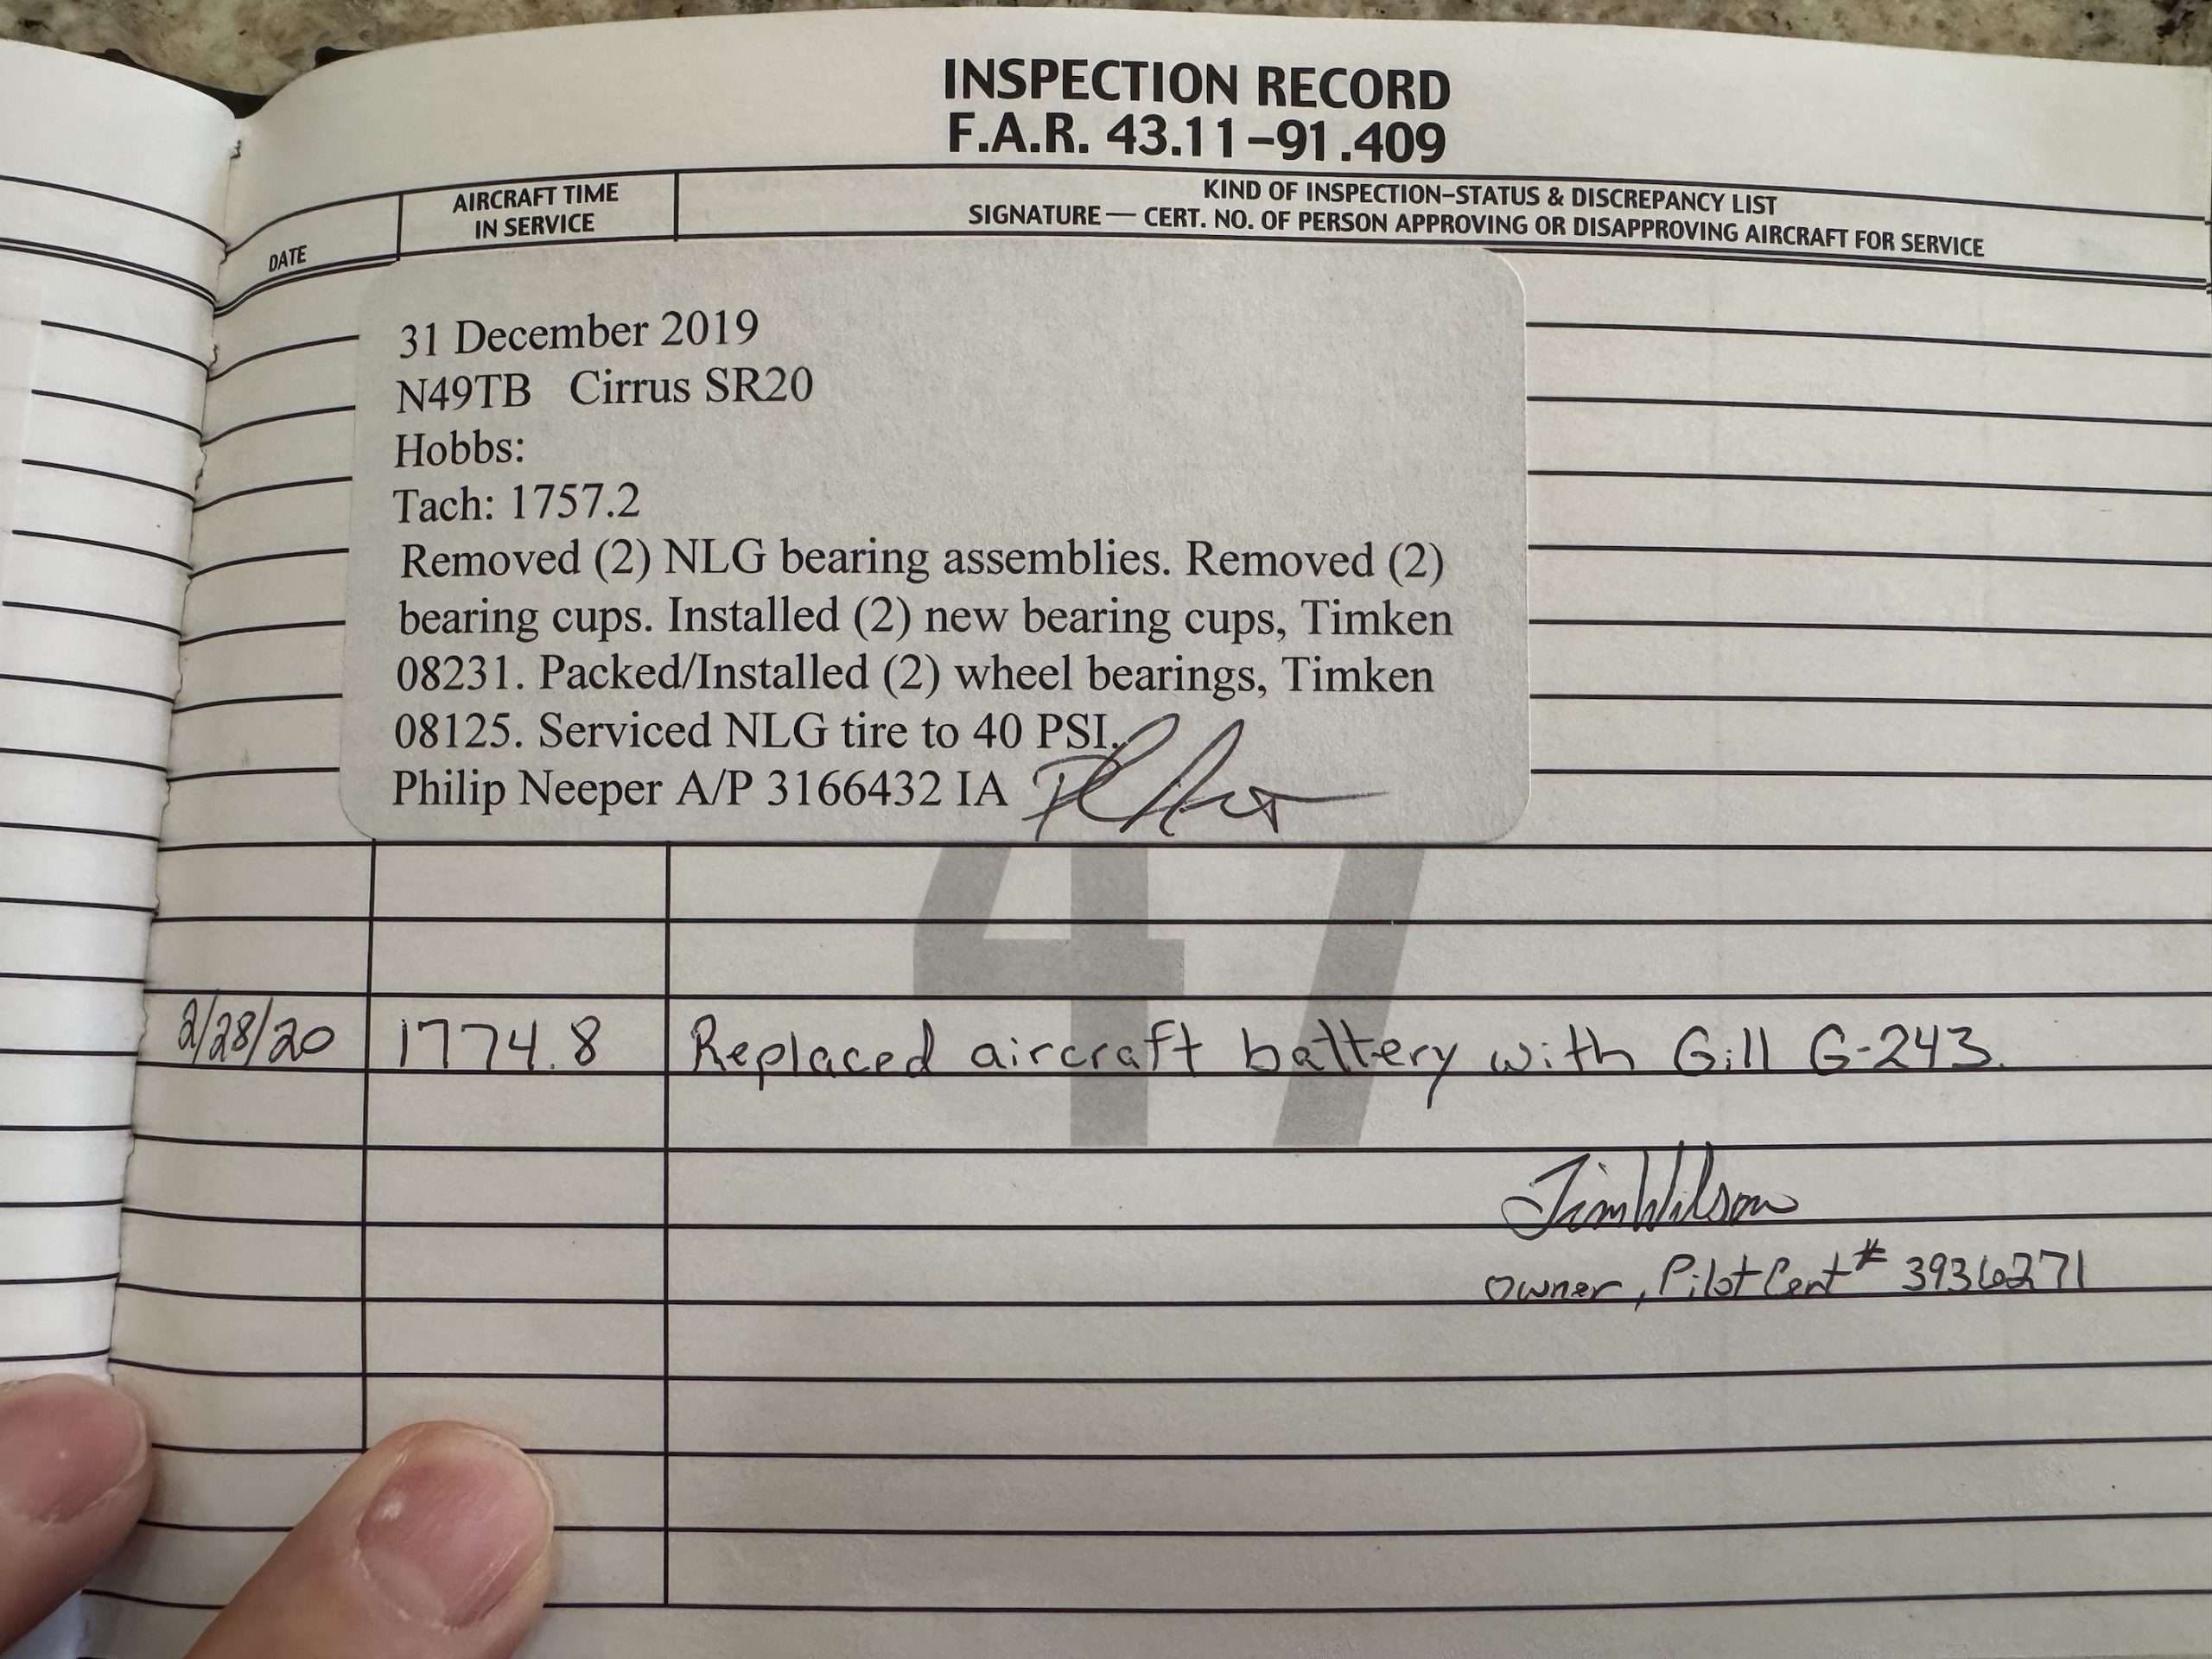 INSPECTION RECORD
F.A.R. 43.11–91.409
DATE
AIRCRAFT TIME
IN SERVICE
KIND OF INSPECTION–STATUS & DISCREPANCY LIST
SIGNATURE — CERT. NO. OF PERSON APPROVING OR DISAPPROVING AIRCRAFT FOR SERVICE
31 December 2019
N49TB Cirrus SR20
Hobbs:
Tach: 1757.2
Removed (2) NLG bearing assemblies. Removed (2)
bearing cups. Installed (2) new bearing cups, Timken
08231. Packed/Installed (2) wheel bearings, Timken
08125. Serviced NLG tire to 40 PSI.
Philip Neeper A/P 3166432 IA
47
2/28/20 1774.8 Replaced aircraft battery with Gill G-243.
Jim Wilson
Owner, Pilot Cert # 3936271